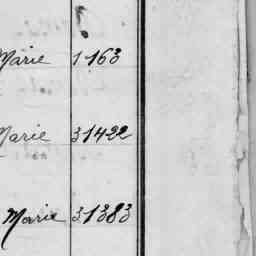 Marie 1163
Marie 31422
Marie 31383